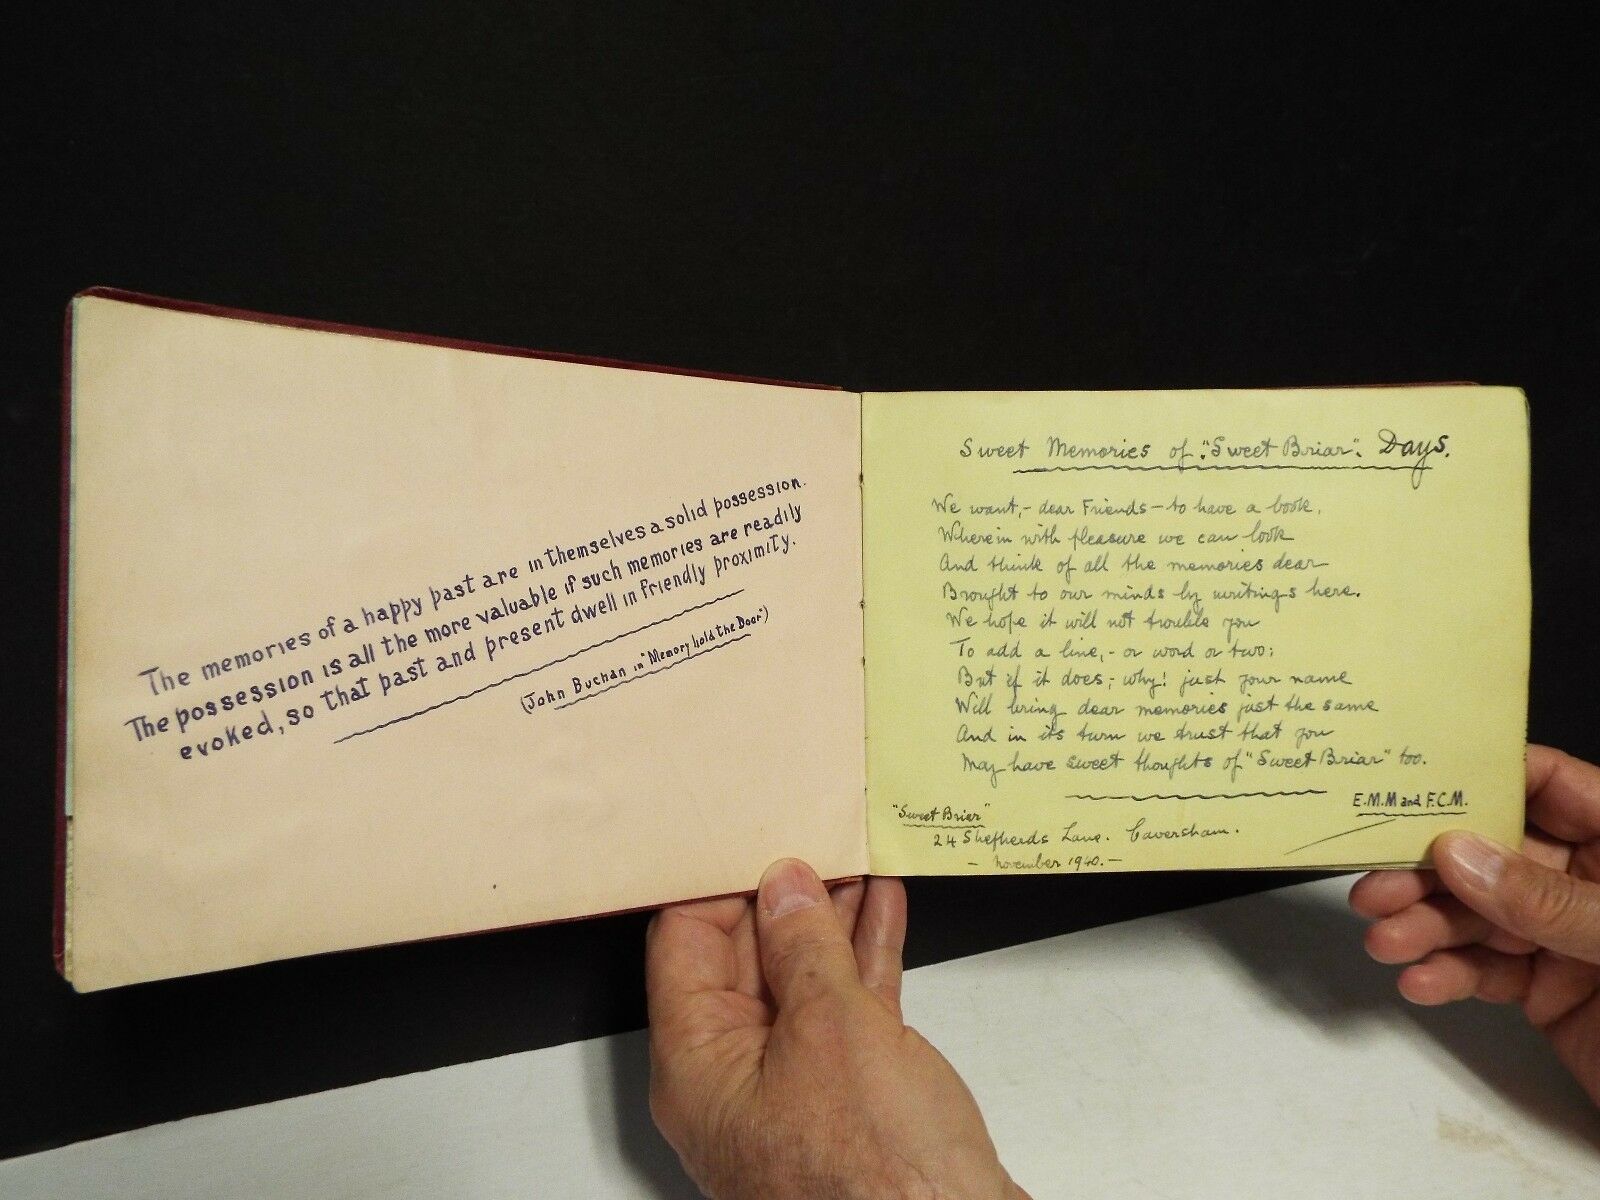 The memories of a happy past are in themselves a solid possession.
The possession is all the more valuable if such memories are readily
evoked, so that past and present dwell in friendly proximity.
(John Buchan in "Memory hold the Door")
Sweet Memories of "Sweet Briar". Days.
We want,- dear Friends - to have a book,
Wherein with pleasure we can look
And think of all the memories dear
Brought to our minds by writings here.
We hope it will not trouble you
To add a line,- or word or two;
But if it does,- why! just your name
Will bring dear memories just the same
And in its turn we trust that you
May have sweet thoughts of "Sweet Briar" too.
E.M.M and F.C.M.
"Sweet Briar"
24 Shepherds Lane. Caversham.
- November 1940. -